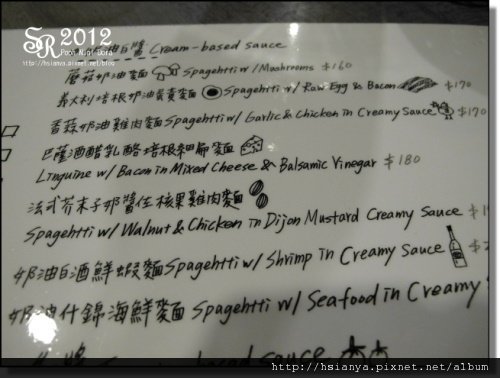 SR 2012
Poon Nuei Bora
http://hsianya.pixnet.net/blog
白醬 Cream-based sauce
蘑菇奶油麵 Spagehtti w/Mashrooms $160
義大利培根奶油蛋黃麵 Spagehtti w/ Raw Egg & Bacon $170
香蒜奶油雞肉麵 Spagehtti w/ Garlic & Chicken in Creamy Sauce $170
巴薩酒醋乳酪培根細扁麵
Linguine w/ Bacon in Mixed Cheese & Balsamic Vinegar $180
法式芥末子奶醬佐核果雞肉麵
Spagehtti w/ Walnut & Chicken in Dijon Mustard Creamy Sauce
奶油白酒鮮蝦麵 Spagehtti w/ Shrimp in Creamy Sauce
奶油什錦海鮮麵 Spagehtti w/ Seafood in Creamy
based sauce
http://hsianya.pixnet.net/album